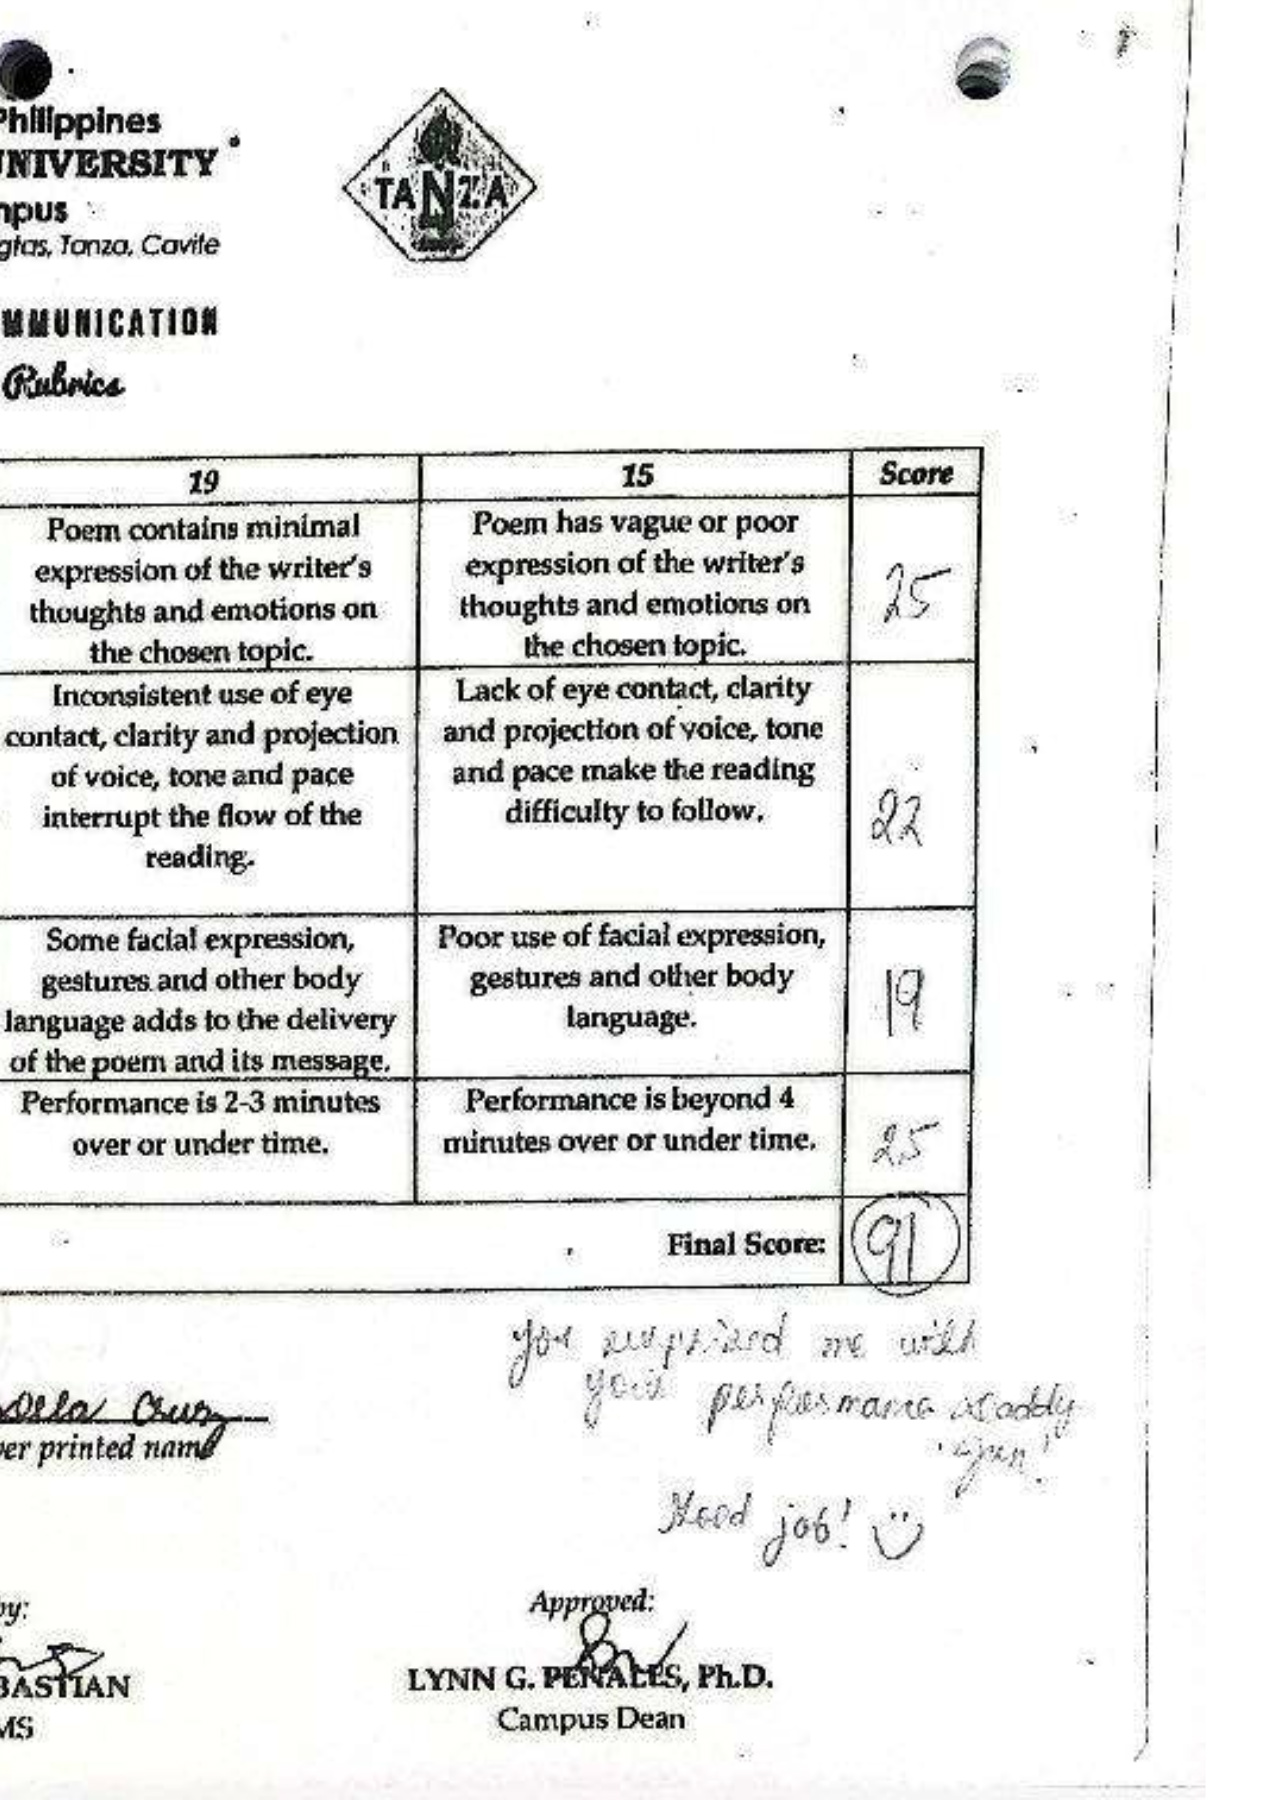 Philippines
UNIVERSITY
mpus
glas, Tanza, Cavite
TANZA
MMUNICATION
Rubrics
19 15 Score
Poem contains minimal expression of the writer's thoughts and emotions on the chosen topic.
Poem has vague or poor expression of the writer's thoughts and emotions on the chosen topic.
25
Inconsistent use of eye contact, clarity and projection of voice, tone and pace interrupt the flow of the reading.
Lack of eye contact, clarity and projection of voice, tone and pace make the reading difficulty to follow.
22
Some facial expression, gestures and other body language adds to the delivery of the poem and its message.
Poor use of facial expression, gestures and other body language.
19
Performance is 2-3 minutes over or under time.
Performance is beyond 4 minutes over or under time.
25
Final Score: 91
You surprized me with
your performance
Good job!
Dela Cruz
ver printed name
by:
BASTIAN
MS
Approved:
LYNN G. PENALES, Ph.D.
Campus Dean